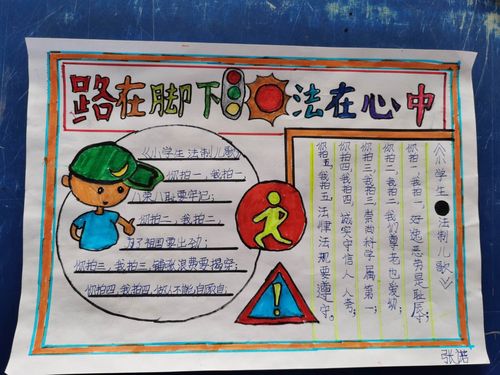 路在脚下 法在心中
《小学生 法制儿歌》
你拍一,我拍一,
八荣八耻要牢记;
你拍二,我拍二,
你拍三,我拍三,铺张浪费要揭穿;
你拍四,我拍四,做人不能自私自;
《小学生 法制儿歌》
你拍一,我拍一,好逸恶劳是耻辱;
你拍二,我拍二,我们尊老也爱幼;
你拍三,我拍三,崇尚科学属第一;
你拍四,我拍四,诚实守信人人夸;
你拍五,我拍五,法律法规要遵守。
张诺